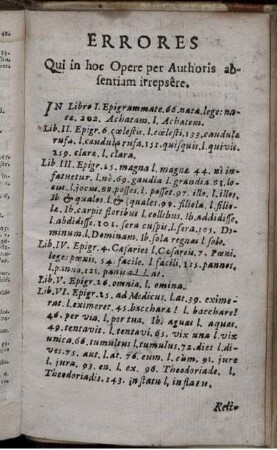 ERRORES
Qui in hoc Opere per Authoris ab-
sentiam irrepsêre.
IN Libro I. Epigrammate. 66. nata. lege: na-
tæ. 202. Achatam. l. Achatem.
Lib. II. Epigr. 6. cælestis. l. cœlesti. 133. caudula
rufa. l. caudula rufa. 152. quisquis. l. quivis.
259. clare. l. clara.
Lib. III. Epigr. 25. magna l. magnæ 44. ni in-
fatuetur. l. nè. 69. gaudia l. grandia. 83. lo-
cus. l. jocus. 88. posses. l. posset. 97. ille. l. illes.
Ib & quales. l & quales. 99. filiela. l. filio-
læ. Ib. carpit floribus l. collibus. Ib. addidisse.
l. abdidisse. 101. sera cuspis. l. sera. 105. Do-
minum. l. Dominam. Ib. sola regnas l. sole.
Lib. IV. Epigr. 4. Cæsaries l. Cæsareis. 7. Pœni-
lege: pœnis. 54. facile. l. facili. 115. pannos,
l. panno. 121. panis
Lib. V. Epigr. 26. omnia, l. omina.
Lib. VI. Epigr. 25. ad Medicus. l. at. 39. eximè-
rat. l. eximeret. 45. bacchara! l. bacchare!
46. per via. l. per tua. Ib. aguai l. aquas.
49. tentavit. l. tentavi. 65. vix una l. vix
unica. 66. tumultus l. tumulus. 72. dies l. di-
ves. 75. aut l. at. 76. eum. l. cùm. 91. jure
l. jura. 93. en. l. ex. 96. Theodoriade. l.
Theodoriadis. 143. in statu l. in flatu.
Reli-